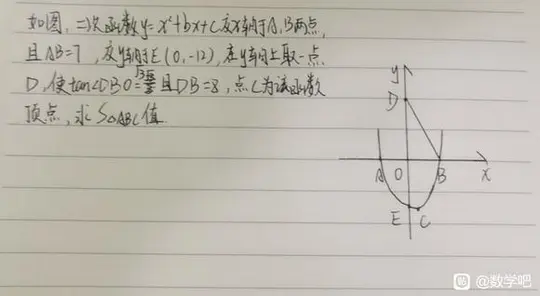 如图,二次函数y=x²+bx+c交x轴于A,B两点,
且AB=7,交y轴于E(0,-12),在y轴上取一点
D,使tan∠DBO=√3且DB=8,点C为该函数
顶点,求S△ABC值.
y
D
A
O
B
x
E
C
贴 @数学吧